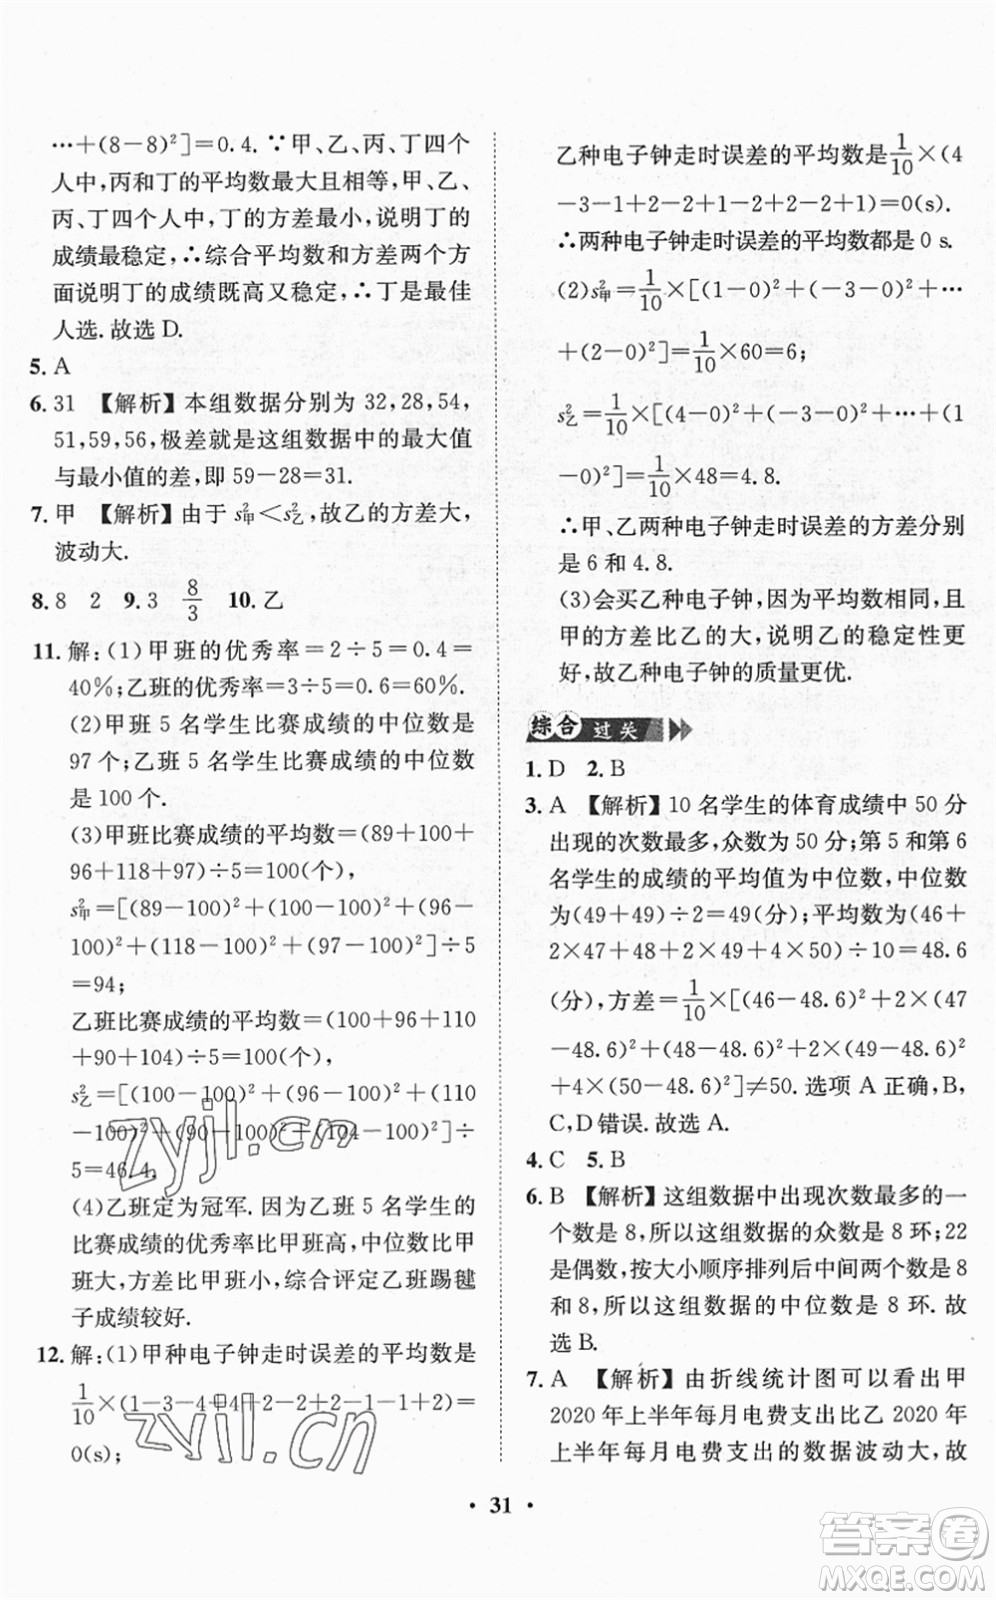 …+(8-8)²]=0.4.∵甲、乙、丙、丁四个
人中,丙和丁的平均数最大且相等,甲、乙、
丙、丁四个人中,丁的方差最小,说明丁的
成绩最稳定,∴综合平均数和方差两个方
面说明丁的成绩既高又稳定,∴丁是最佳
人选.故选 D.
5. A
6. 31 【解析】本组数据分别为 32,28,54,
51,59,56,极差就是这组数据中的最大值
与最小值的差,即 59-28=31.
7. 甲 【解析】由于 s²甲<s²乙,故乙的方差大,
波动大.
8. 8 2 9. 3 8/3 10. 乙
11. 解:(1)甲班的优秀率=2÷5=0.4=
40%;乙班的优秀率=3÷5=0.6=60%.
(2)甲班 5 名学生比赛成绩的中位数是
97 个;乙班 5 名学生比赛成绩的中位数
是 100 个.
(3)甲班比赛成绩的平均数=(89+100+
96+118+97)÷5=100(个),
s²甲=[(89-100)²+(100-100)²+(96-
100)²+(118-100)²+(97-100)²]÷5
=94;
乙班比赛成绩的平均数=(100+96+110
+90+104)÷5=100(个),
s²乙=[(100-100)²+(96-100)²+(110
-100)²+(90-100)²+(104-100)²]÷
5=46.4,
(4)乙班定为冠军.因为乙班 5 名学生的
的比赛成绩的优秀率比甲班高,中位数比甲
班大,方差比甲班小,综合评定乙班踢毽
子成绩较好.
12. 解:(1)甲种电子钟走时误差的平均数是
1/10×(1-3-4+4+2-2+2-1-1+2)=
0(s);
乙种电子钟走时误差的平均数是1/10×(4
-3-1+2-2+1-2+2-2+1)=0(s).
∴两种电子钟走时误差的平均数都是 0 s.
(2)s²甲=1/10×[(1-0)²+(-3-0)²+…
+(2-0)²]=1/10×60=6;
s²乙=1/10×[(4-0)²+(-3-0)²+…+(1
-0)²]=1/10×48=4.8.
∴甲、乙两种电子钟走时误差的方差分别
是 6 和 4.8.
(3)会买乙种电子钟,因为平均数相同,且
甲的方差比乙的大,说明乙的稳定性更
好,故乙种电子钟的质量更优.
综合过关
1. D 2. B
3. A 【解析】10 名学生的体育成绩中 50 分
出现的次数最多,众数为 50 分;第 5 和第 6
名学生的成绩的平均值为中位数,中位数
为(49+49)÷2=49(分);平均数为(46+
2×47+48+2×49+4×50)÷10=48.6
(分),方差=1/10×[(46-48.6)²+2×(47
-48.6)²+(48-48.6)²+2×(49-48.6)²
+4×(50-48.6)²]≠50.选项 A 正确,B,
C,D 错误.故选 A.
4. C 5. B
6. B 【解析】这组数据中出现次数最多的一
个数是 8,所以这组数据的众数是 8 环;22
是偶数,按大小顺序排列后中间两个数是 8
和 8,所以这组数据的中位数是 8 环.故
选 B.
7. A 【解析】由折线统计图可以看出甲
2020 年上半年每月电费支出比乙 2020 年
上半年每月电费支出的数据波动大,故
• 31 •
zyjl.cn
zyjl.cn
答案圈
MXQE.COM